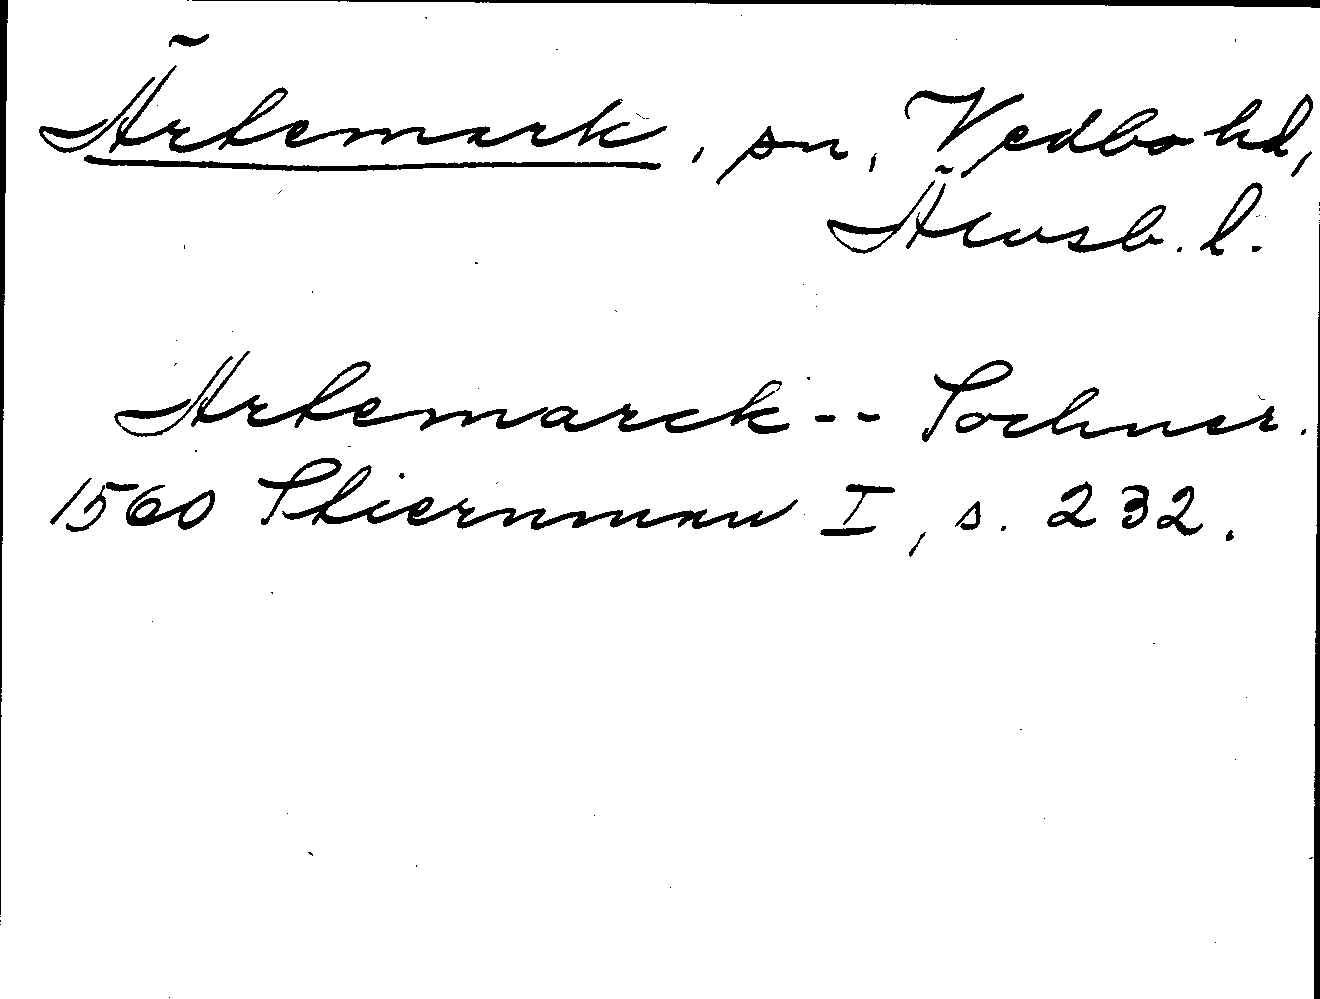 Ärtemark, sn, Vedbo hd,
Älvsb. l.
Artemarck -- Sochner.
1560 Stiernman I, s. 232.